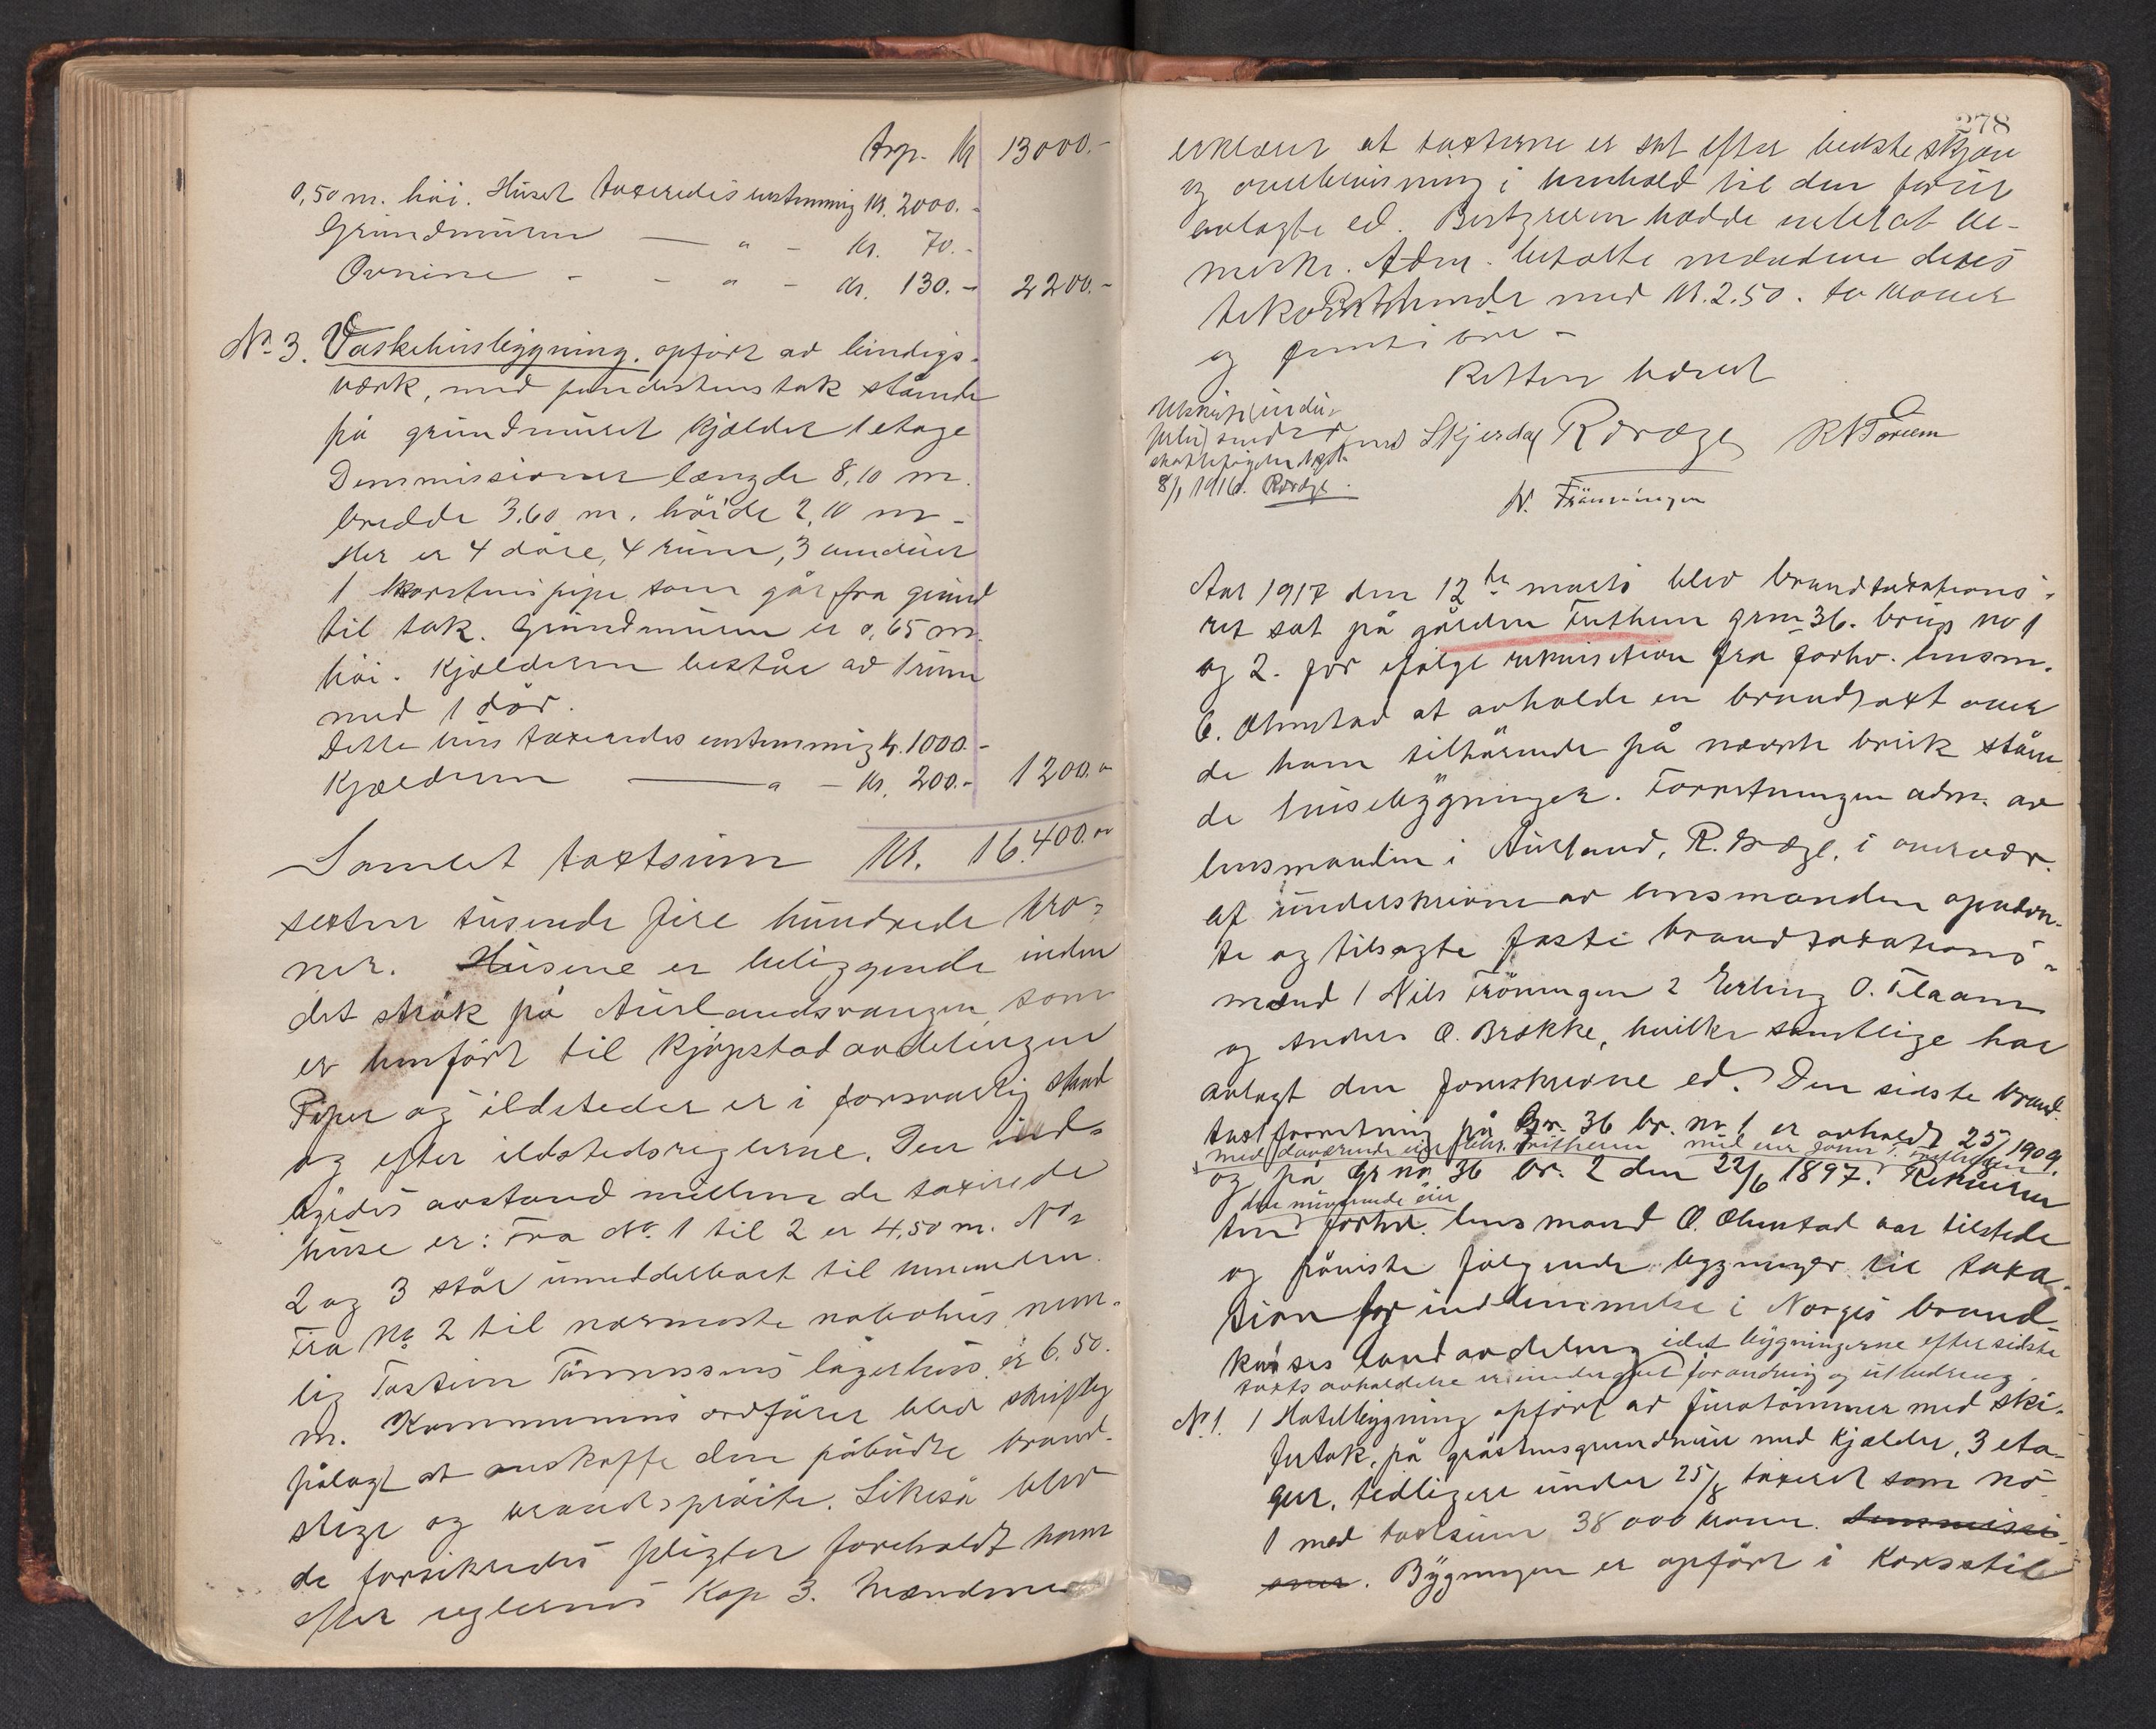 Trp. Kr 13000.-
0,50 m. høi. Huset taxeredes enstemmig Kr. 2000.-
Grundmuren — " - kr. 70.-
Ovnene - - " - kr. 130.- 2200.-
No. 3. Vaskehusbygning. opført av bindings-
værk, med pandestenstak stående
på grundmuret kjelder 1 etage
Demmissioner længde 8,10 m.
bredde 3.60 m. høide 2,10 m.
Her er 4 døre, 4 rum, 3 vinduer
1 skorstenspipe som går fra grund
til tak. Grundmuren er 0,65 m.
høi. Kjælderen består av 1 rum
med 1 dør.
Dette hus taxeredes enstemmig kr. 1000.-
Kjælderen — " - kr. 200.- 1200.00
Samlet taxtsum Kr. 16.400.00
sexten tusende fire hundrede kro-
ner. Husene er beliggende inden
det strøk på Aurlandsvangen, som
er henført til kjøpstadavdelingen
Piper og ildsteder er i forsvarlig stand
og efter ildstedsreglerne. Den ind-
byrdes avstand mellem de taxerede
huse er: Fra No. 1 til 2 er 4,50 m. No.
2 og 3 står umiddelbart til hinanden.
Fra No. 2 til nærmeste nabohus nem-
lig Tostein Tønnesens lagerhus er 6.50.
m. Kommunens ordfører blev skriftlig
pålagt at anskaffe den påbudte brand-
stige og brandsprøite. Likeså blev
de forsikredes pligter foreholdt ham
efter reglernes Kap 3. Mændene
278
erklærer at taxterne er sat efter bedste skjøn
og overbevisning i henhold til den forut
avlagte ed. Bestyreren hadde intet at be-
merke. Adm. betalte mændene deres
med Kr. 2.50. to kroner
og femti øre -
Retten hævet
Skjerdal R Brække R N Toreem
8/1 1916.
N. Frönningen
Aar 1917 den 12te marts blev brandtaxations-
ret sat på gården Fretheim grn 36. bruks no 1
og 2. for ifølge rekvisition fra forhv. lensm.
C. Olmstad at avholde en brandtaxt over
de ham tilhørende på nævnte bruk ståen-
de husebygninger. Forretningen adm. av
lensmanden i Aurland, R. Brække, i overvær
af underskrevne av lensmanden opnævn-
te og tilsagte faste brandtaxations-
mænd 1 Nils Frönningen 2 Erling O. Flaam
og Anders O. Brekke, hvilke samtlige har
avlagt den foreskrevne ed. Den sidste brand-
taxtforretning på Gr. 36 br. nr. 1 er avholdt 25/ 1909.
og på Gr no. 36 br. 2 den 22/6 1897. Rekviren-
den nuværende eier
ten forhv. lensmand C. Olmstad var tilstede
og påviste følgende bygninger til taxa-
sion for indlemmelse i Norges brand-
kasses landavdeling idet bygningerne efter sidste
taxts avholdelse er undergaaet forandring og utbedring.
No. 1. 1 Hotelbygning opført av furutømmer med ski-
fertak, på gråstensgrundmur med kjelder, 3 eta-
ger, tidligere under 25/8 taxeret som no
1 med taxtsum 38000 kroner.
Bygningen er opført i Korsstil